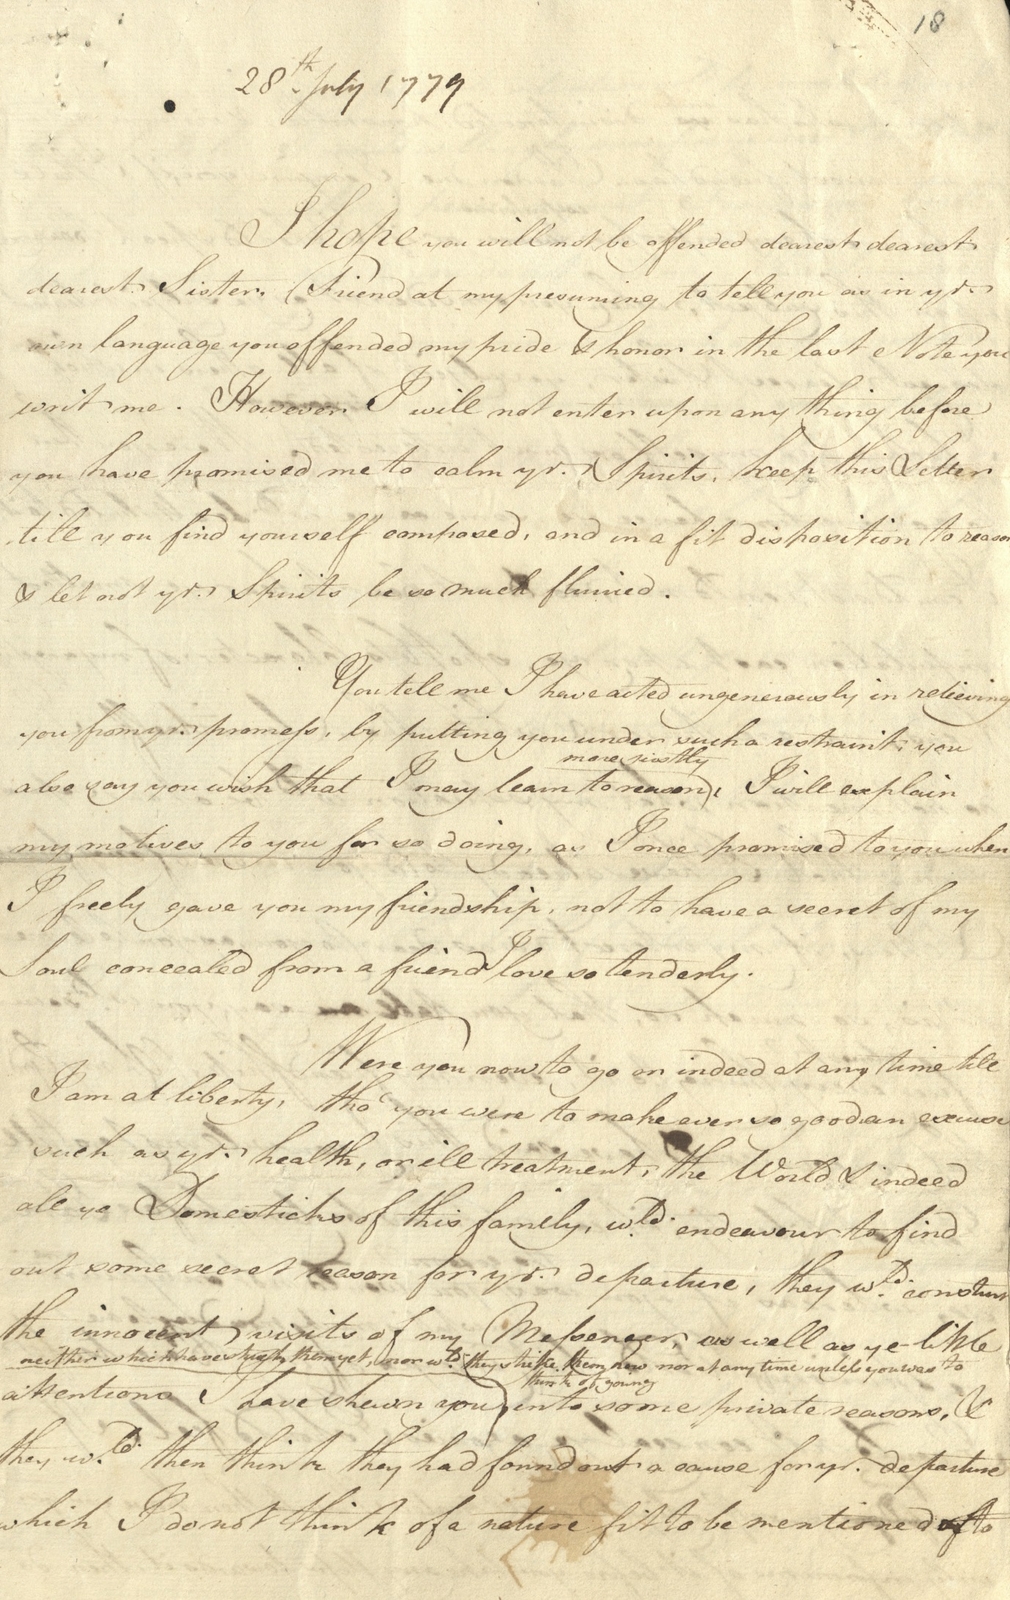 18
28th July 1779
I hope you will not be offended dearest dearest
dearest Sister & Friend at my presuming to tell you as in yr.
own language you offended my pride & honor in the last Note you
writ me. However I will not enter upon any thing before
you have promised me to calm yr. Spirits, keep this Letter
till you find yourself composed, and in a fit disposition to reason
& let not yr. Spirits be so much flurried.
You tell me I have acted ungenerously in relieving
you from yr. promess, by putting you under such a restraint; you
more justly
also say you wish that I may learn to reason, I will explain
my motives to you for so doing, as I once promised to you when
I freely gave you my friendship, not to have a secret of my
Soul concealed from a friend I love so tenderly.
Were you now to go or indeed at any time till
I am at liberty, tho' you were to make ever so good an excuse
such as yr. health, or ill treatment, the World & indeed
all ye Domesticks of this family, wld. endeavour to find
out some secret reason for yr. departure, they wld. construe
the innocent visits of my Messenger, as well as ye little
neither which have struck them yet, nor wld. they strike them now nor at any time unless you was to
think of going
attentions I have shewn you, into some private reasons, &
they wld. then think they had found out a cause for yr. departure
which I do not think of a nature fit to be mentioned to